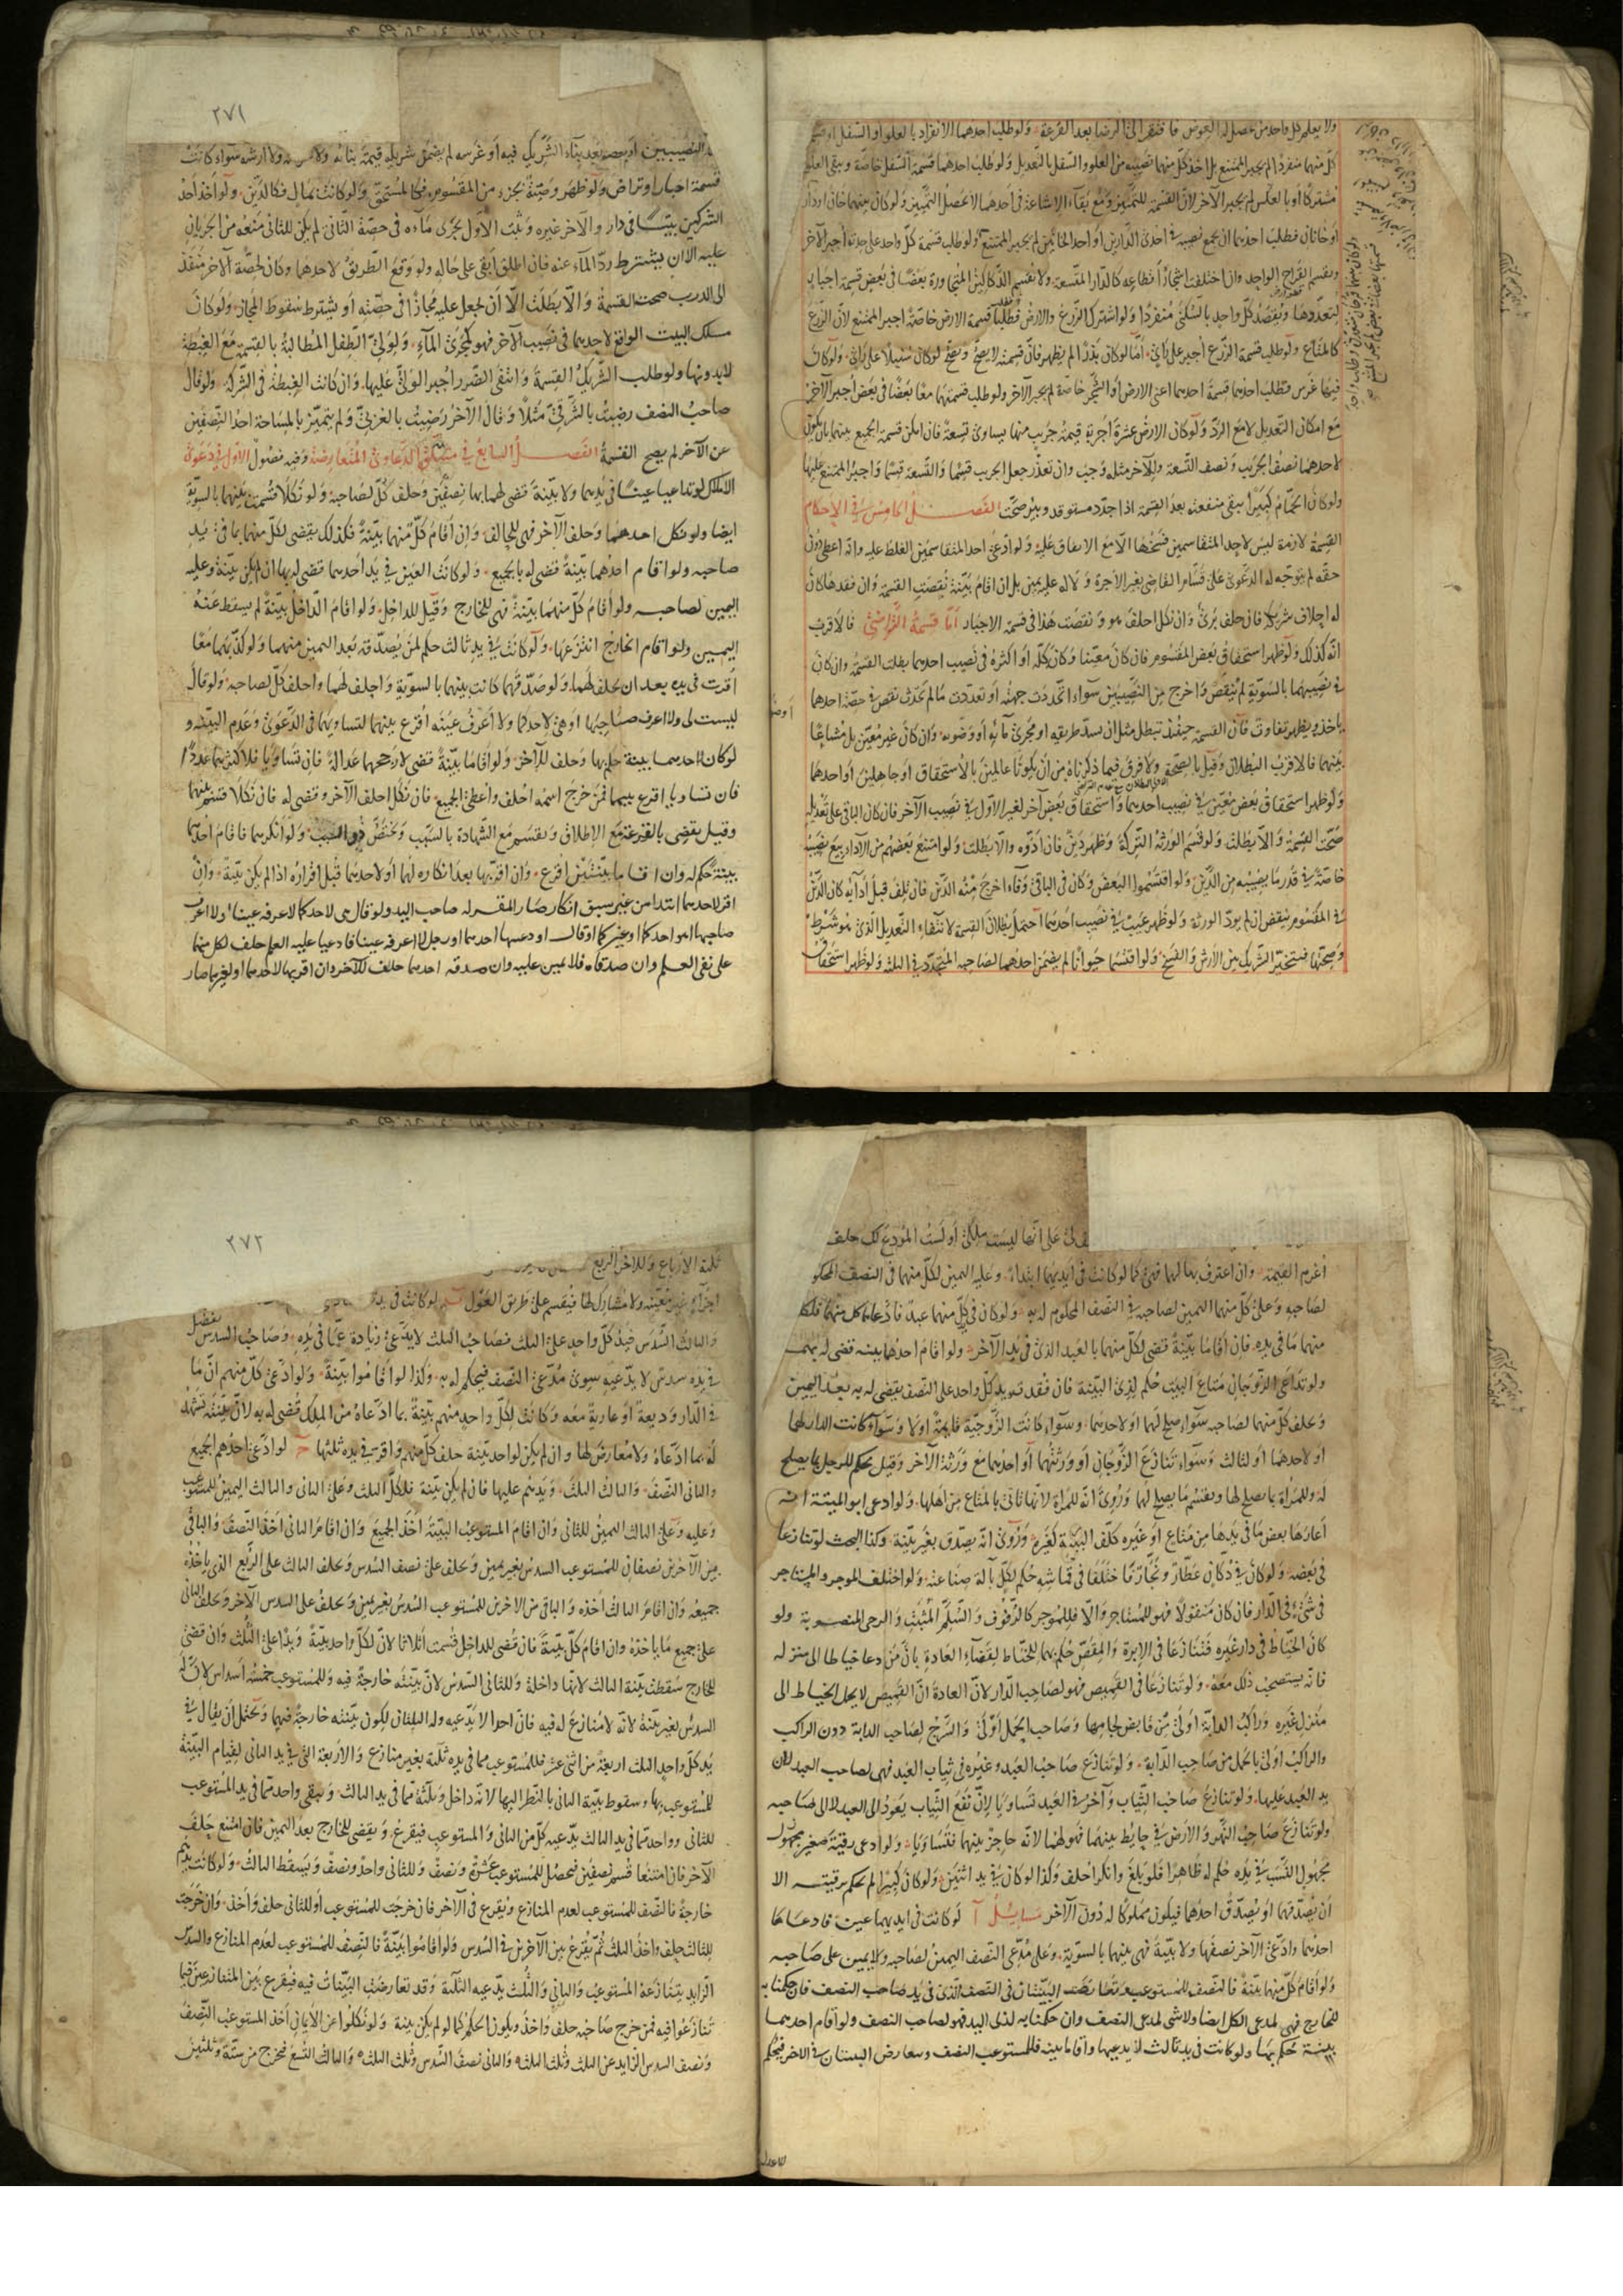 ولا يعلم كل واحد من يحصل له العوض فافتقر الى الرضا بعد القرعة ولو طلب احدهما الانفراد بالعلو او السفل او قسم
كل منهما منفردا لم يجبر الممتنع بل اخذ كل منهما نصيبه من العلو والسفل بالتعديل ولو طلب احدهما قسمة السفل خاصة ويبقى العلو
مشتركا او بالعكس لم يجبر الاخر لان القسمة للتمييز ومع بقاء الاشاعة في احدهما لا يحصل التمييز ولو كان بينهما خان او دار
او خانان فطلب احدهما ان يجمع نصيبه في احدى الدارين او احد الخانين لم يجبر الممتنع ولو طلب قسمة كل واحد على حدته اجبر الآخر
ويقسم القراح الواحد وان اختلفت اشجار اقطاعه كالدار المتسعة ولا تقسم الدكاكين المتجاورة بعضا في بعض قسمة اجبار
لتعددها ويقصد كل واحد بالسكنى منفردا ولو اشترك الزرع والارض فطلب قسمة الارض خاصة اجبر الممتنع لان الزرع
كالمتاع ولو طلب قسمة الزرع اجبر على رأي اما لو كان بذرا لم يظهر فان قسمته لا يصح ويصح لو كان سنبلا على رأي ولو كان
فيها غرس فطلب احدهما قسمة احدهما اعنى الارض او الشجر خاصة لم يجبر الآخر ولو طلب قسمتهما معا بعضا في بعض اجبر الآخر
مع امكان التعديل لا مع الرد ولو كان الارض عشرة اجربة قيمة جريب منها يساوى تسعة فان امكن قسمة الجميع بينهما بان يكون
لاحدهما نصف الجريب ونصف التسعة وللآخر مثله وجب وان تعذر جعل الجريب قسما والتسعة قسما واجبر الممتنع عليها
ولو كان الحمام كبيرا يبقى منفعته بعد القسمة اذا جدد مستوقد وبئر صحت الفصل الخامس في الاحكام
القسمة لازمة ليس لاحد المتقاسمين فسخها الا مع الاتفاق عليه ولو ادعى احد المتقاسمين الغلط عليه وانه اعطى دون
حقه لم يتوجه له الدعوى على قسام القاضى بغير الاجرة ولا له عليه يمين بل ان اقام بينة نقضت القسمة وان فقدها كان
له احلاف شريكه فان حلف برئ وان نكل احلف هو ونقضت هذا في قسمة الاجبار اما قسمة التراضى فالاقرب
انه كذلك ولو ظهر استحقاق بعض المقسوم فان كان معينا وكان كله او اكثره في نصيب احدهما بطلت القسمة وان كان
في نصيبهما بالسوية لم ينقض واخرج من النصيبين سواء اتحدت جهته او تعددت ما لم يحدث نقص في حصة احدهما
ياخذه ويظهر تفاوت فان القسمة حينئذ تبطل مثل ان يسد طريقه او مجرى مائه او ضوئه وان كان غير معين بل مشاعا
بينهما فالاقرب البطلان وقيل بالصحة ولا فرق فيما ذكرناه من ان يكونا عالمين بالاستحقاق او جاهلين او احدهما
ولو ظهر استحقاق بعض معين في نصيب احدهما واستحقاق بعض آخر لغير الاول في نصيب الآخر فان كان الباقى على تعديله
صحت القسمة والا بطلت ولو قسم الورثة التركة وظهر دين فان ادوه والا بطلت ولو امتنع بعضهم من الاداء بيع نصيبه
خاصة في قدر ما يصيبه من الدين ولو اقتسموا البعض وكان في الباقى وفاء اخرج منه الدين فان تلف قبل ادائه كان الدين
في المقسوم ينقض ان لم يود الورثة ولو ظهر عيب في نصيب احدهما احتمل بطلان القسمة لانتفاء التعديل الذى هو شرط
وصحتها فيتخير الشريك بين الارش والفسخ ولو اقتسما حيوانا لم يضمن احدهما لصاحبه المتجدد في الثلثة ولو ظهر استحقاق
٢٧١
النصيبين او بعضه بعد بناء الشريك فيه او غرسه لم يضمن شريكه قيمة بنائه ولا غرسه ولا ارشه سواء كانت
قسمة اجبار او تراض ولو ظهر وصية بجزء من المقسوم فكالمستحق ولو كانت بمال فكالدين ولو اخذ احد
الشركين بيتا في دار والآخر غيره وبيت الاول يجرى ماءه في حصة الثانى لم يكن للثانى منعه من الجريان
عليه الا ان يشترط رد الماء عنه فان اطلق ابقى على حاله ولو وقع الطريق لاحدهما وكان لحصة الآخر منفذ
الى الدرب صحت القسمة والا بطلت الا ان يجعل عليه مجازا في حصته او يشترط سقوط المجاز ولو كان
مسلك البيت الواقع لاحدهما في نصيب الآخر فهو كمجرى الماء ولولى الطفل المطالبة بالقسمة مع الغبطة
لا بدونها ولو طلب الشريك القسمة وانتفى الضرر اجبر الولى عليها وان كانت الغبطة في الشركة ولو قال
صاحب النصف رضيت بالشرقى مثلا وقال الآخر رضيت بالغربى ولم يتميز بالمساحة احد النصفين
عن الآخر لم يصح القسمة الفصل السابع في متعلق الدعاوى المتعارضة وفيه فصول الاول في دعوى
الاملاك لو تداعيا عينا في يدهما ولا بينة قضى لهما بها نصفين وحلف كل لصاحبه ولو نكلا قسمت بينهما بالسوية
ايضا ولو نكل احدهما وحلف الآخر فهى للحالف وان اقام كل منهما بينة فكذلك يقضى لكل منهما بما في يد
صاحبه ولو اقام احدهما بينة قضى له بالجميع ولو كانت العين في يد احدهما قضى له بها ان لم يكن بينة وعليه
اليمين لصاحبه ولو اقام كل منهما بينة فهى للخارج وقيل للداخل ولو اقام الداخل بينة لم يسقط عنه
اليمين ولو اقام الخارج انتزعها ولو كانت في يد ثالث حكم لمن يصدقه بعد اليمين منهما ولو كذبهما معا
اقرت في يده بعد ان يحلف لهما ولو صدقهما كانت بينهما بالسوية واحلف لهما واحلف كل لصاحبه ولو قال
ليست لى ولا اعرف صاحبها او هى لاحدكما ولا اعرف عينه اقرع بينهما لتساويهما في الدعوى وعدم البينة و
لو كان لاحدهما بينة حكم بها وحلف للآخر ولو اقاما بينة قضى لارجحهما عدالة فان تساويا فلاكثرهما عددا
فان تساويا اقرع بينهما فمن خرج اسمه احلف واعطى الجميع فان نكل احلف الآخر وقضى له فان نكلا قسم بينهما
وقيل يقضى بالقرعة مع الاطلاق ويقسم مع الشهادة بالسبب ويختص ذو السبب ولو انكرهما فاقام احدهما
بينة حكم له وان اقاما بينتين اقرع وان اقر بها بعد انكاره لهما او لاحدهما قبل اقراره اذا لم يكن بينة وان
اقر لاحدهما ابتدا من غير سبق انكار صار المقر له صاحب اليد ولو قال هى لاحدكما لا عرفه عينا او لا اعرف
صاحبها اهو احدكما او غيركما او قال اودعنيها احدهما او رجل لا اعرفه عينا فادعيا عليه العلم حلف لكل منهما
على نفى العلم وان صدقاه فلا يمين عليه وان صدقه احدهما حلف للآخر وان اقر بها لاحدهما او لغيرهما صار
على انها ليست ملكى او لست المودع لك حلف
اغرم القيمة وان اعترف بها لهما فهى كما لو كانت في ايديهما ابتداء وعليه اليمين لكل منهما في النصف المحكوم
لصاحبه وعلى كل منهما اليمين لصاحبه في النصف المحكوم له به ولو كان في يد كل منهما عبد فادعاهما كل منهما فلكل
منهما ما في يده فان اقاما بينة قضى لكل منهما بالعبد الذى في يد الآخر ولو اقام احدهما بينة قضى له بهما
ولو تداعى الزوجان متاع البيت حكم لذى البينة فان فقد فيد كل واحد على النصف يقضى له به بعد اليمين
ويحلف كل منهما لصاحبه سواء صلح لهما او لاحدهما وسواء كانت الزوجية قايمة او لا وسواء كانت الدار لهما
او لاحدهما او لثالث وسواء تنازع الزوجان او ورثتهما او احدهما مع ورثة الآخر وقيل يحكم للرجل بما يصلح
له وللمراة بما يصلح لها ويقسم ما يصلح لهما وروى انه للمراة لانها تاتى بالمتاع من اهلها ولو ادعى ابو الميتة انه
اعارها بعض ما في يدها من متاع او غيره كلف البينة كغيره وروى انه يصدق بغير بينة وكذا البحث لو تنازعا
في بعضه ولو كان في دكان عطار ونجار فاختلفا في قماشه حكم لكل بآلة صناعته ولو اختلف الموجر والمستاجر
في شىء في الدار فان كان منقولا فهو للمستاجر والا فللموجر كالرفوف والسلم المثبت والرحى المنصوبة ولو
كان الخياط في دار غيره فتنازعا في الابرة والمقص حكم بهما للخياط لقضاء العادة بان من دعا خياطا الى منزله
فانه يستصحب ذلك معه ولو تنازعا في القميص فهو لصاحب الدار لان العادة ان القميص لا يحمل الخياط الى
منزل غيره وراكب الدابة اولى من قابض لجامها وصاحب الحمل اولى والسرج لصاحب الدابة دون الراكب
والراكب اولى بالحمل من صاحب الدابة ولو تنازع صاحب العبد وغيره في ثياب العبد فهى لصاحب العبد لان
يد العبد عليها ولو تنازع صاحب الثياب وآخر في العبد تساويا لان نفع الثياب يعود الى العبد لا الى صاحبه
ولو تنازع صاحب النهر والارض في حائط بينهما فهو لهما لانه حاجز بينهما فتساويا ولو ادعى رقية صغير مجهول
مجهول النسب في يده حكم له ظاهرا فلو بلغ وانكر احلف وكذا لو كان في يد اثنين ولو كان كبيرا لم يحكم برقيته الا
ان يصدقهما او يصدق احدهما فيكون مملوكا له دون الآخر مسايل آ لو كانت في ايديهما عين فادعاها
احدهما وادعى الآخر نصفها ولا بينة فهى بينهما بالسوية وعلى مدعى النصف اليمين لصاحبه ولا يمين على صاحبه
ولو اقام كل منهما بينة فالنصف للمستوعب وتعارضت البينتان في النصف الذى في يد صاحب النصف فان حكمنا به
للخارج فهى لمدعى الكل ايضا ولا شىء لمدعى النصف وان حكمنا به لذى اليد فهو لصاحب النصف ولو اقام احدهما
بينة حكم بها ولو كانت في يد ثالث لا يدعيها واقاما بينة فللمستوعب النصف وتعارض البينتان في الاخر فيحكم
٢٧٢
ثلثة الارباع وللاخر الربع
اجزاء غير معينة ولا مشار اليها فيقسم على طريق العول لو كانت في يد
والثالث السدس فيد كل واحد على الثلث فصاحب الثلث لا يدعى زيادة عما في يده وصاحب السدس يفضل
في يده سدس لا يدعيه سوى مدعى النصف فيحكم له به وكذا لو اقاموا بينة ولو ادعى كل منهم ان ما
في الدار وديعة او عارية معه وكانت لكل واحد منهم بينة بما ادعاه من الملك قضى له به لان بينته تشهد
له بما ادعاه ولا معارض لها وان لم يكن لواحد بينة حلف كل منهم واقر في يده ثلثها ج لو ادعى احدهم الجميع
والثانى النصف والثالث الثلث ويدهم عليها فان لم يكن بينة فلكل الثلث وعلى الثانى والثالث اليمين للمستوعب
وعليه وعلى الثالث اليمين للثانى وان اقام المستوعب البينة اخذ الجميع وان اقام الثانى اخذ النصف والباقى
بين الآخرين نصفان للمستوعب السدس بغير يمين ويحلف على نصف السدس ويحلف الثالث على الربع الذى ياخذه
جميعه وان اقام الثالث اخذه والباقى من الاخرين للمستوعب السدس بغير يمين ويحلف على السدس الآخر ويحلف الثانى
على جميع ما ياخذه وان اقام كل بينة فان قضى للداخل قسمت اثلاثا لان لكل واحد بينة ويدا على الثلث وان قضى
للخارج سقطت بينة الثالث لانها داخلة وللثانى السدس لان بينته خارجة فيه وللمستوعب خمسة اسداس لان له
السدس بغير بينة لانه لا منازع له فيه فان احدا لا يدعيه وله الثلثان لكون بينته خارجة فيهما ويحتمل ان يقال في
يد كل واحد الثلث اربعة من اثنى عشر فللمستوعب مما في يده ثلثة بغير منازع والاربعة التى في يد الثانى لقيام البينة
للمستوعب بها وسقوط بينة الثانى بالنظر اليها لانه داخل وثلثة مما في يد الثالث ويبقى واحد مما في يد المستوعب
للثانى وواحد مما في يد الثالث يدعيه كل من الثانى والمستوعب فيقرع ويقضى للخارج بعد اليمين فان امتنع حلف
الآخر فان امتنعا قسم نصفين فيحصل للمستوعب عشرة ونصف وللثانى واحد ونصف ويسقط الثالث ولو كانت يدهم
خارجة فالنصف للمستوعب لعدم المنازع ويقرع في الآخر فان خرجت للمستوعب او للثانى حلف واخذ وان خرجت
للثالث حلف واخذ الثلث ثم يقرع بين الآخرين في السدس ولو اقاموا بينة فالنصف للمستوعب لعدم المنازع والسدس
الزايد يتنازعه المستوعب والثانى والثلث يدعيه الثلثة وقد تعارضت البينات فيه فيقرع بين المتنازعين فيما
تنازعوا فيه فمن خرج صاحبه حلف واخذ ويكون الحكم كما لو لم يكن بينة ولو نكلوا عن الايمان اخذ المستوعب النصف
ونصف السدس الزايد عن الثلث وثلث الثلث والثانى نصف السدس وثلث الثلث والثالث التسع فيخرج من ستة وثلثين